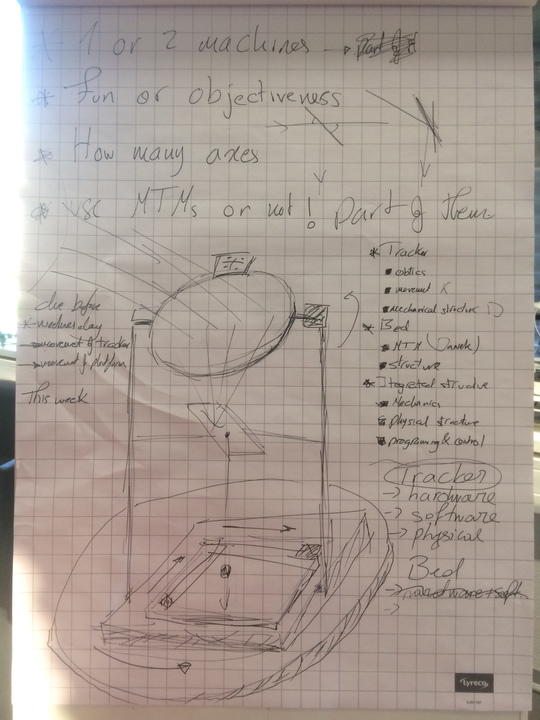 * 1 or 2 machines →
* Fun or objectiveness
* How many axes
* use MTMs or not! part of them
* Tracker
▪ optics
▪ movement
▪ mechanical structure
* Bed
▪ MTM
▪ structure
* Integrated structure
▪ Mechanics
▪ physical structure
▪ programing & control
due before
* wednesday
→ movement of tracker
→ movement of platform
This week
Tracker
→ hardware
→ software
→ physical
Bed
→ hardware + soft
→
lyreco